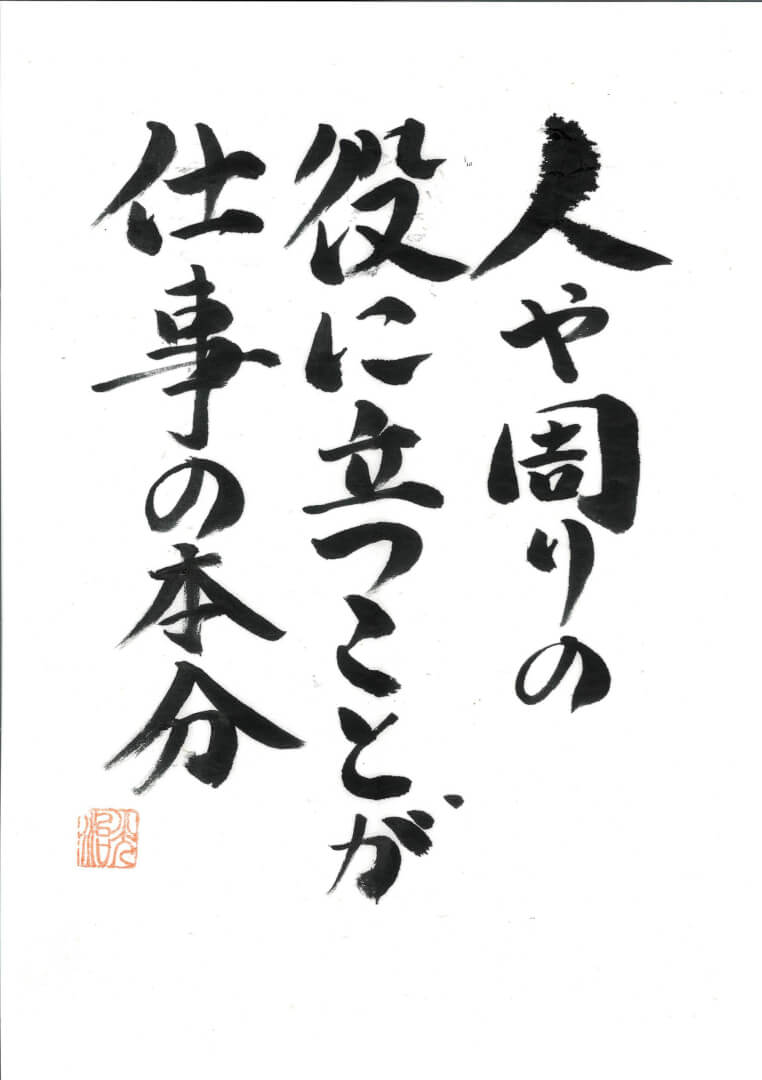 人や周りの
役に立つことが
仕事の本分